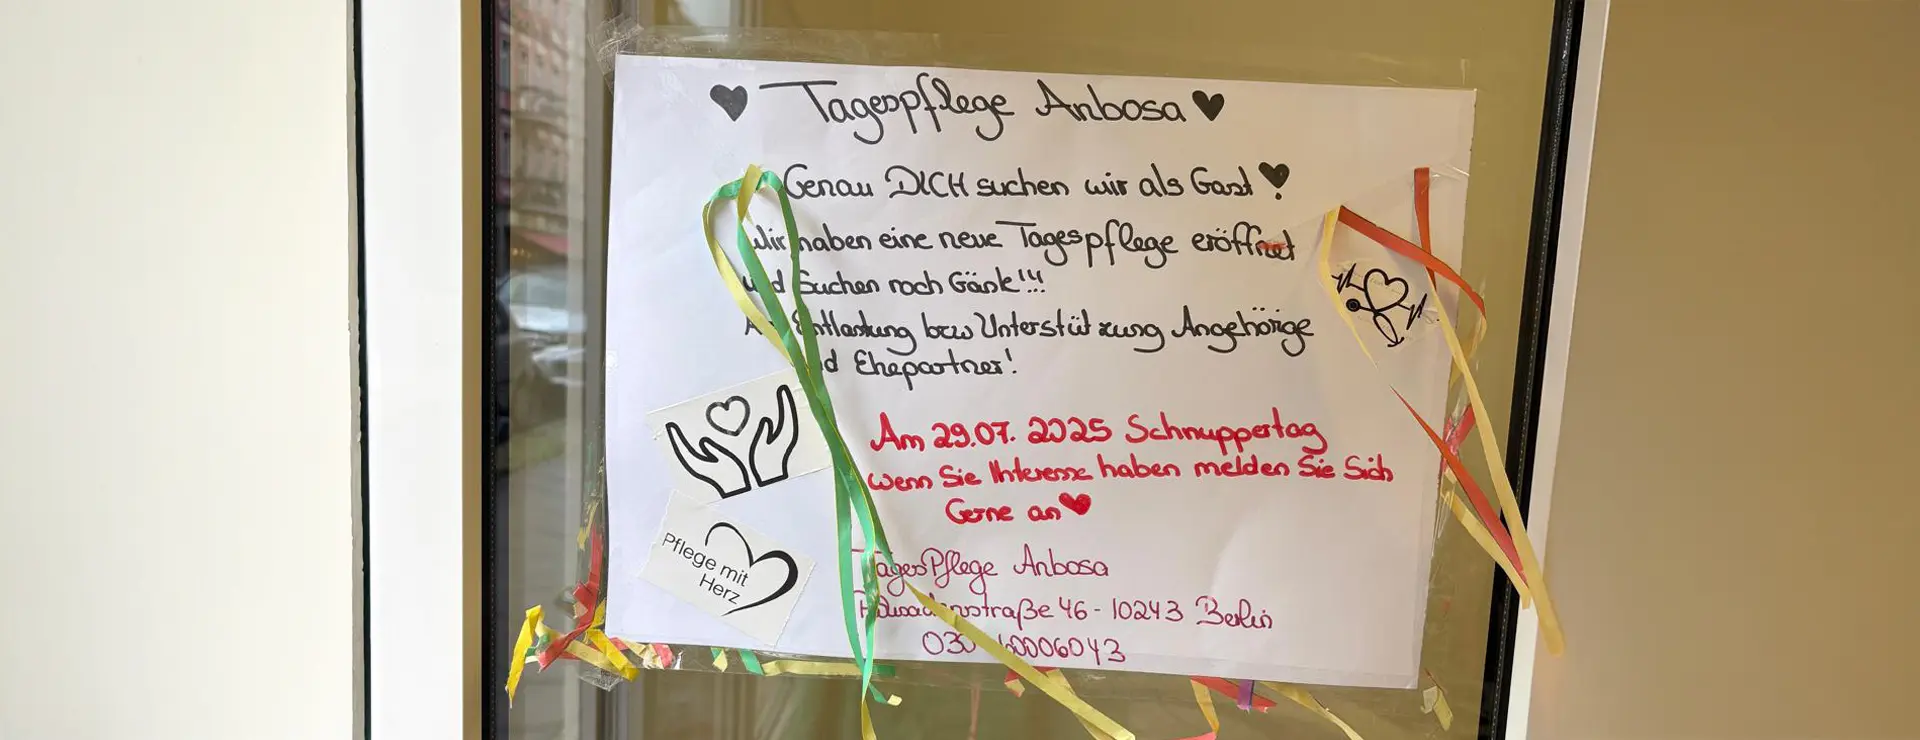 Tagespflege Anbosa
Genau DICH suchen wir als Gast!
Wir haben eine neue Tagespflege eröffnet
und Suchen noch Gäste!!!
Entlastung bzw Unterstützung Angehörige
Ehepartner!
Am 29.07.2025 Schnuppertag
wenn Sie Interesse haben melden Sie Sich
Gerne an
Pflege mit
Herz
TagesPflege Anbosa
46 - 10243 Berlin